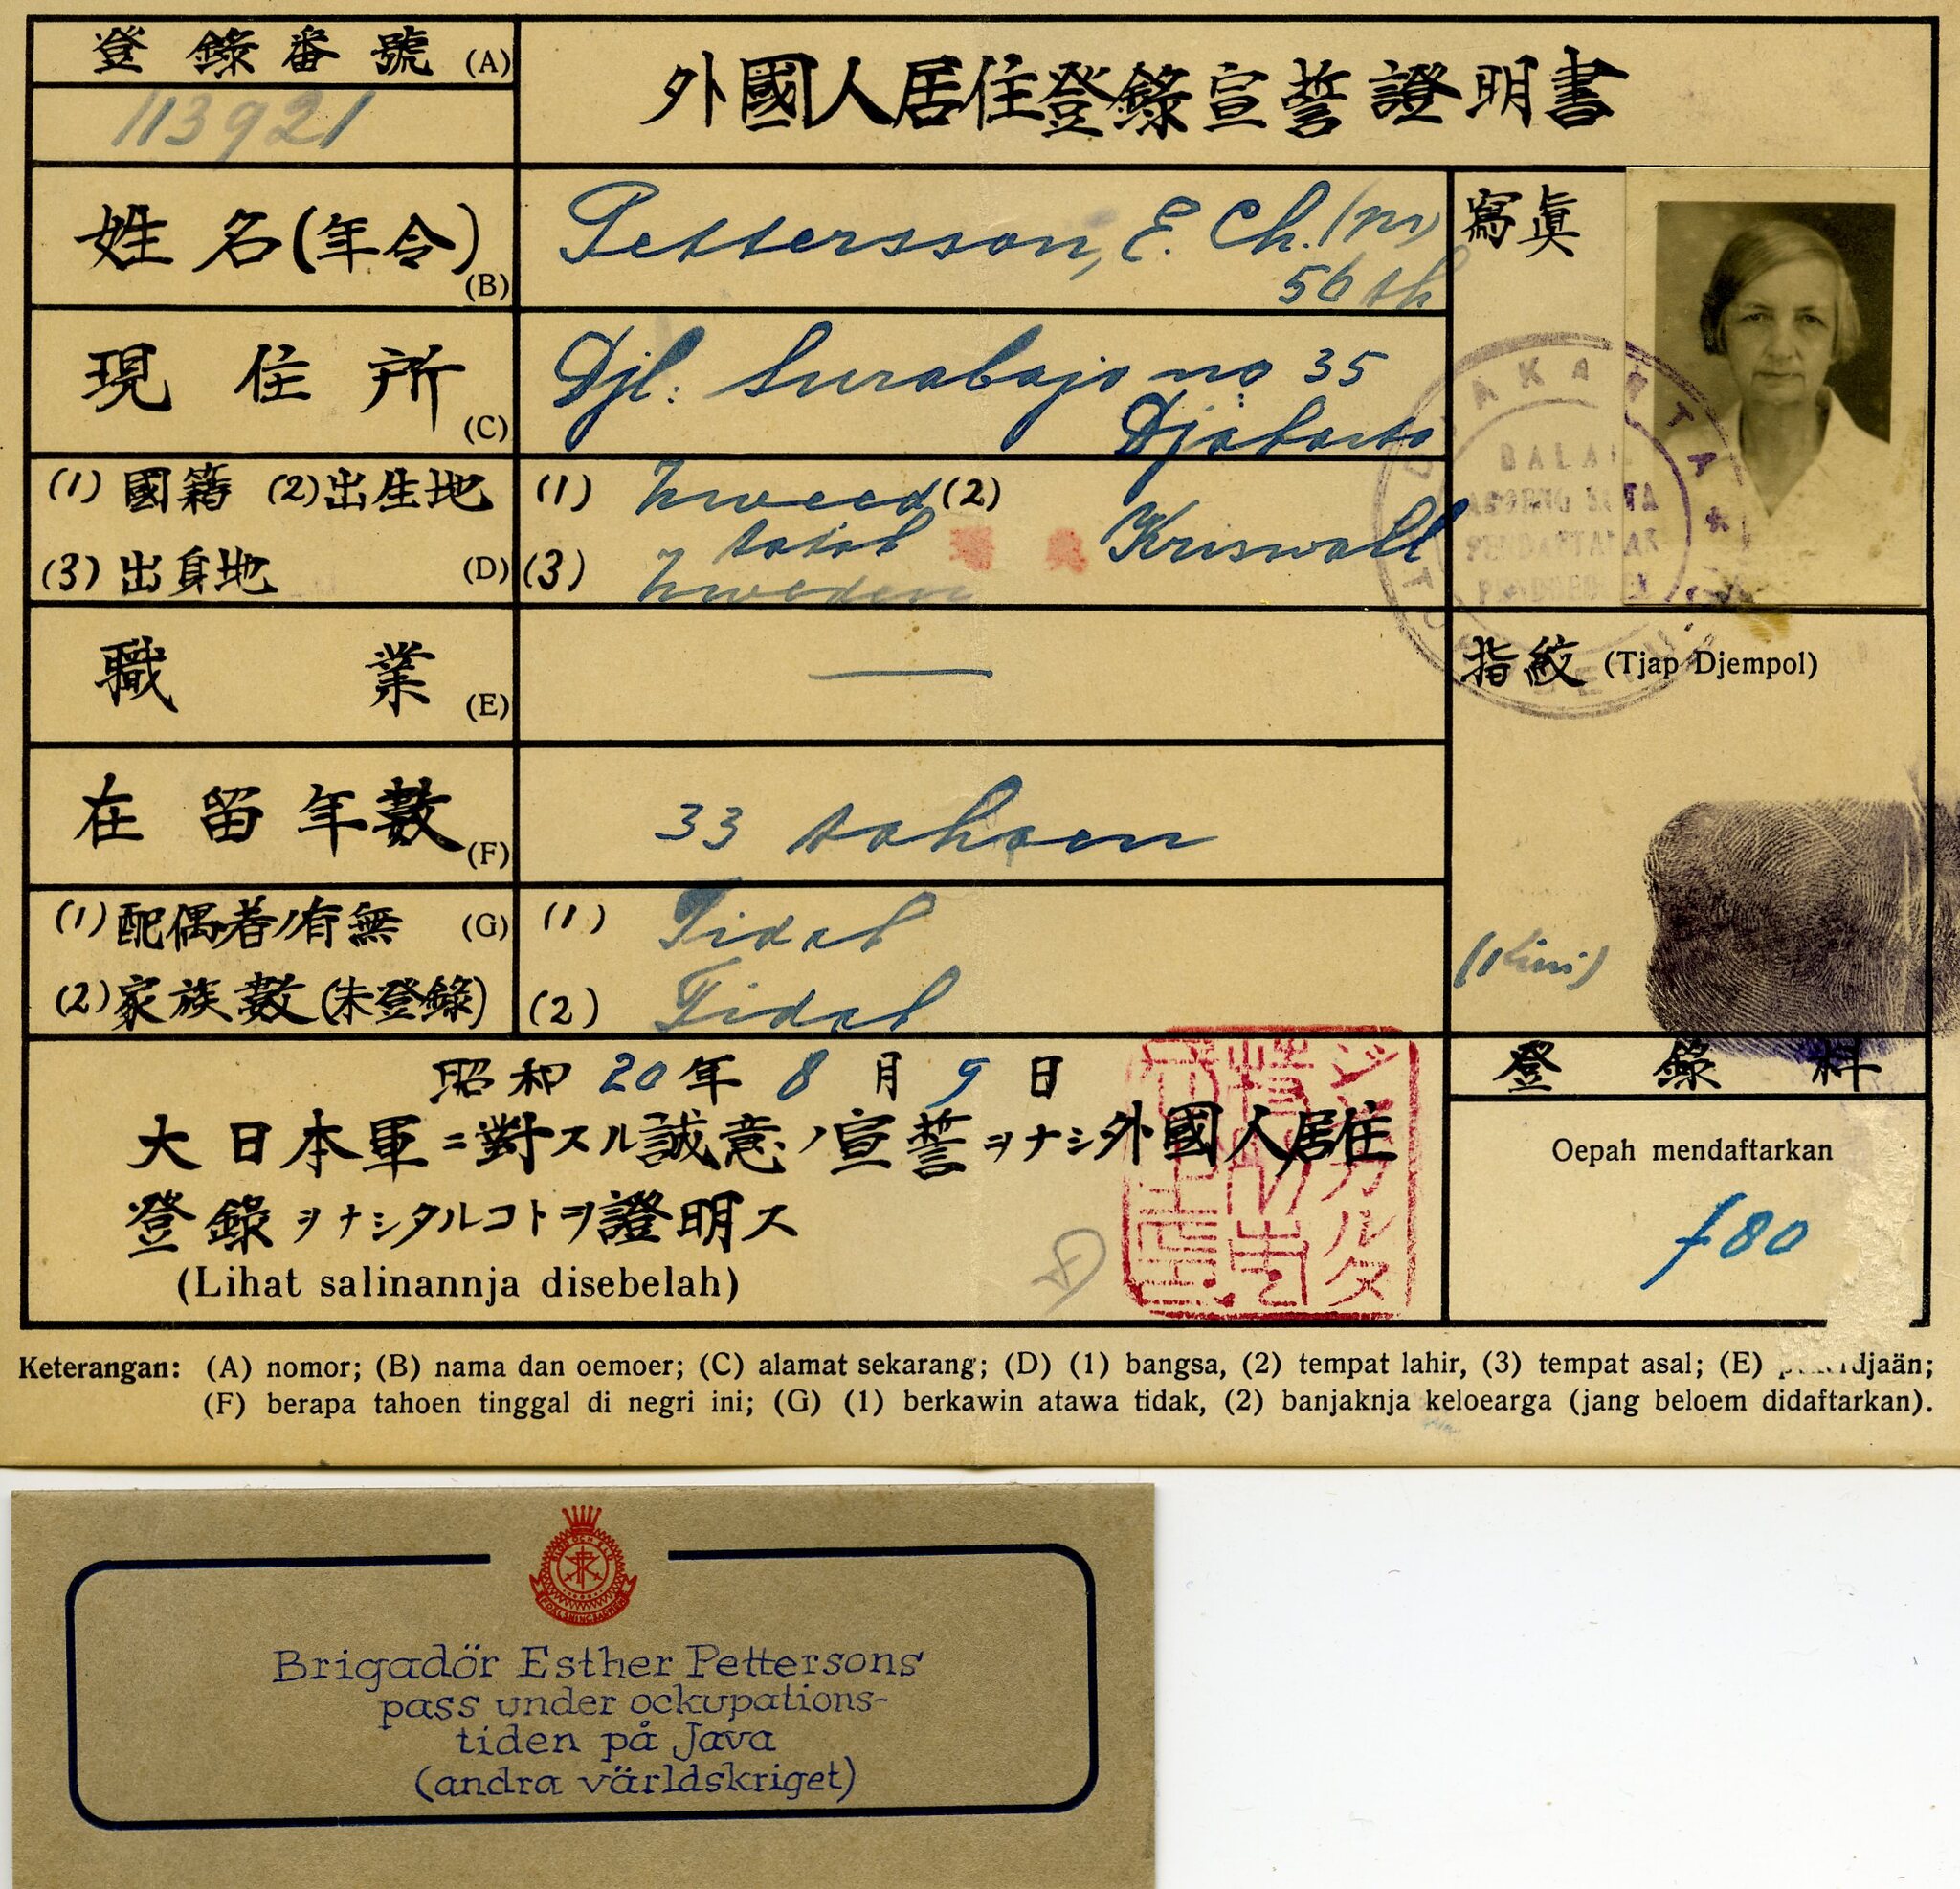 登錄番號 (A)
113921
外國人居住登錄宣誓證明書
姓名(年令) (B)
Pettersson, E. Ch. (m)
56 th
寫眞
現住所 (C)
Djl: Surabaja no 35
Djakarta
(1) 國籍 (2) 出生地
(3) 出身地 (D)
(1) Zweed (2)
totok
Kriswall
(3) Zweden
職業 (E)
—
指紋 (Tjap Djempol)
在留年數 (F)
33 tahoen
(1) 配偶者ノ有無 (G)
(1) Tidak
(2) 家族數(未登錄)
(2) Tidak
(Kiri)
昭和 20 年 8 月 9 日
大日本軍ニ對スル誠意ノ宣誓ヲナシ外國人居住
登錄ヲナシタルコトヲ證明ス
(Lihat salinannja disebelah)
登錄料
Oepah mendaftarkan
f 80
ジャカルタ
Keterangan: (A) nomor; (B) nama dan oemoer; (C) alamat sekarang; (D) (1) bangsa, (2) tempat lahir, (3) tempat asal; (E)
(F) berapa tahoen tinggal di negri ini; (G) (1) berkawin atawa tidak, (2) banjaknja keloearga (jang beloem didaftarkan).
Brigadör Esther Pettersons
pass under ockupations-
tiden på Java
(andra världskriget)